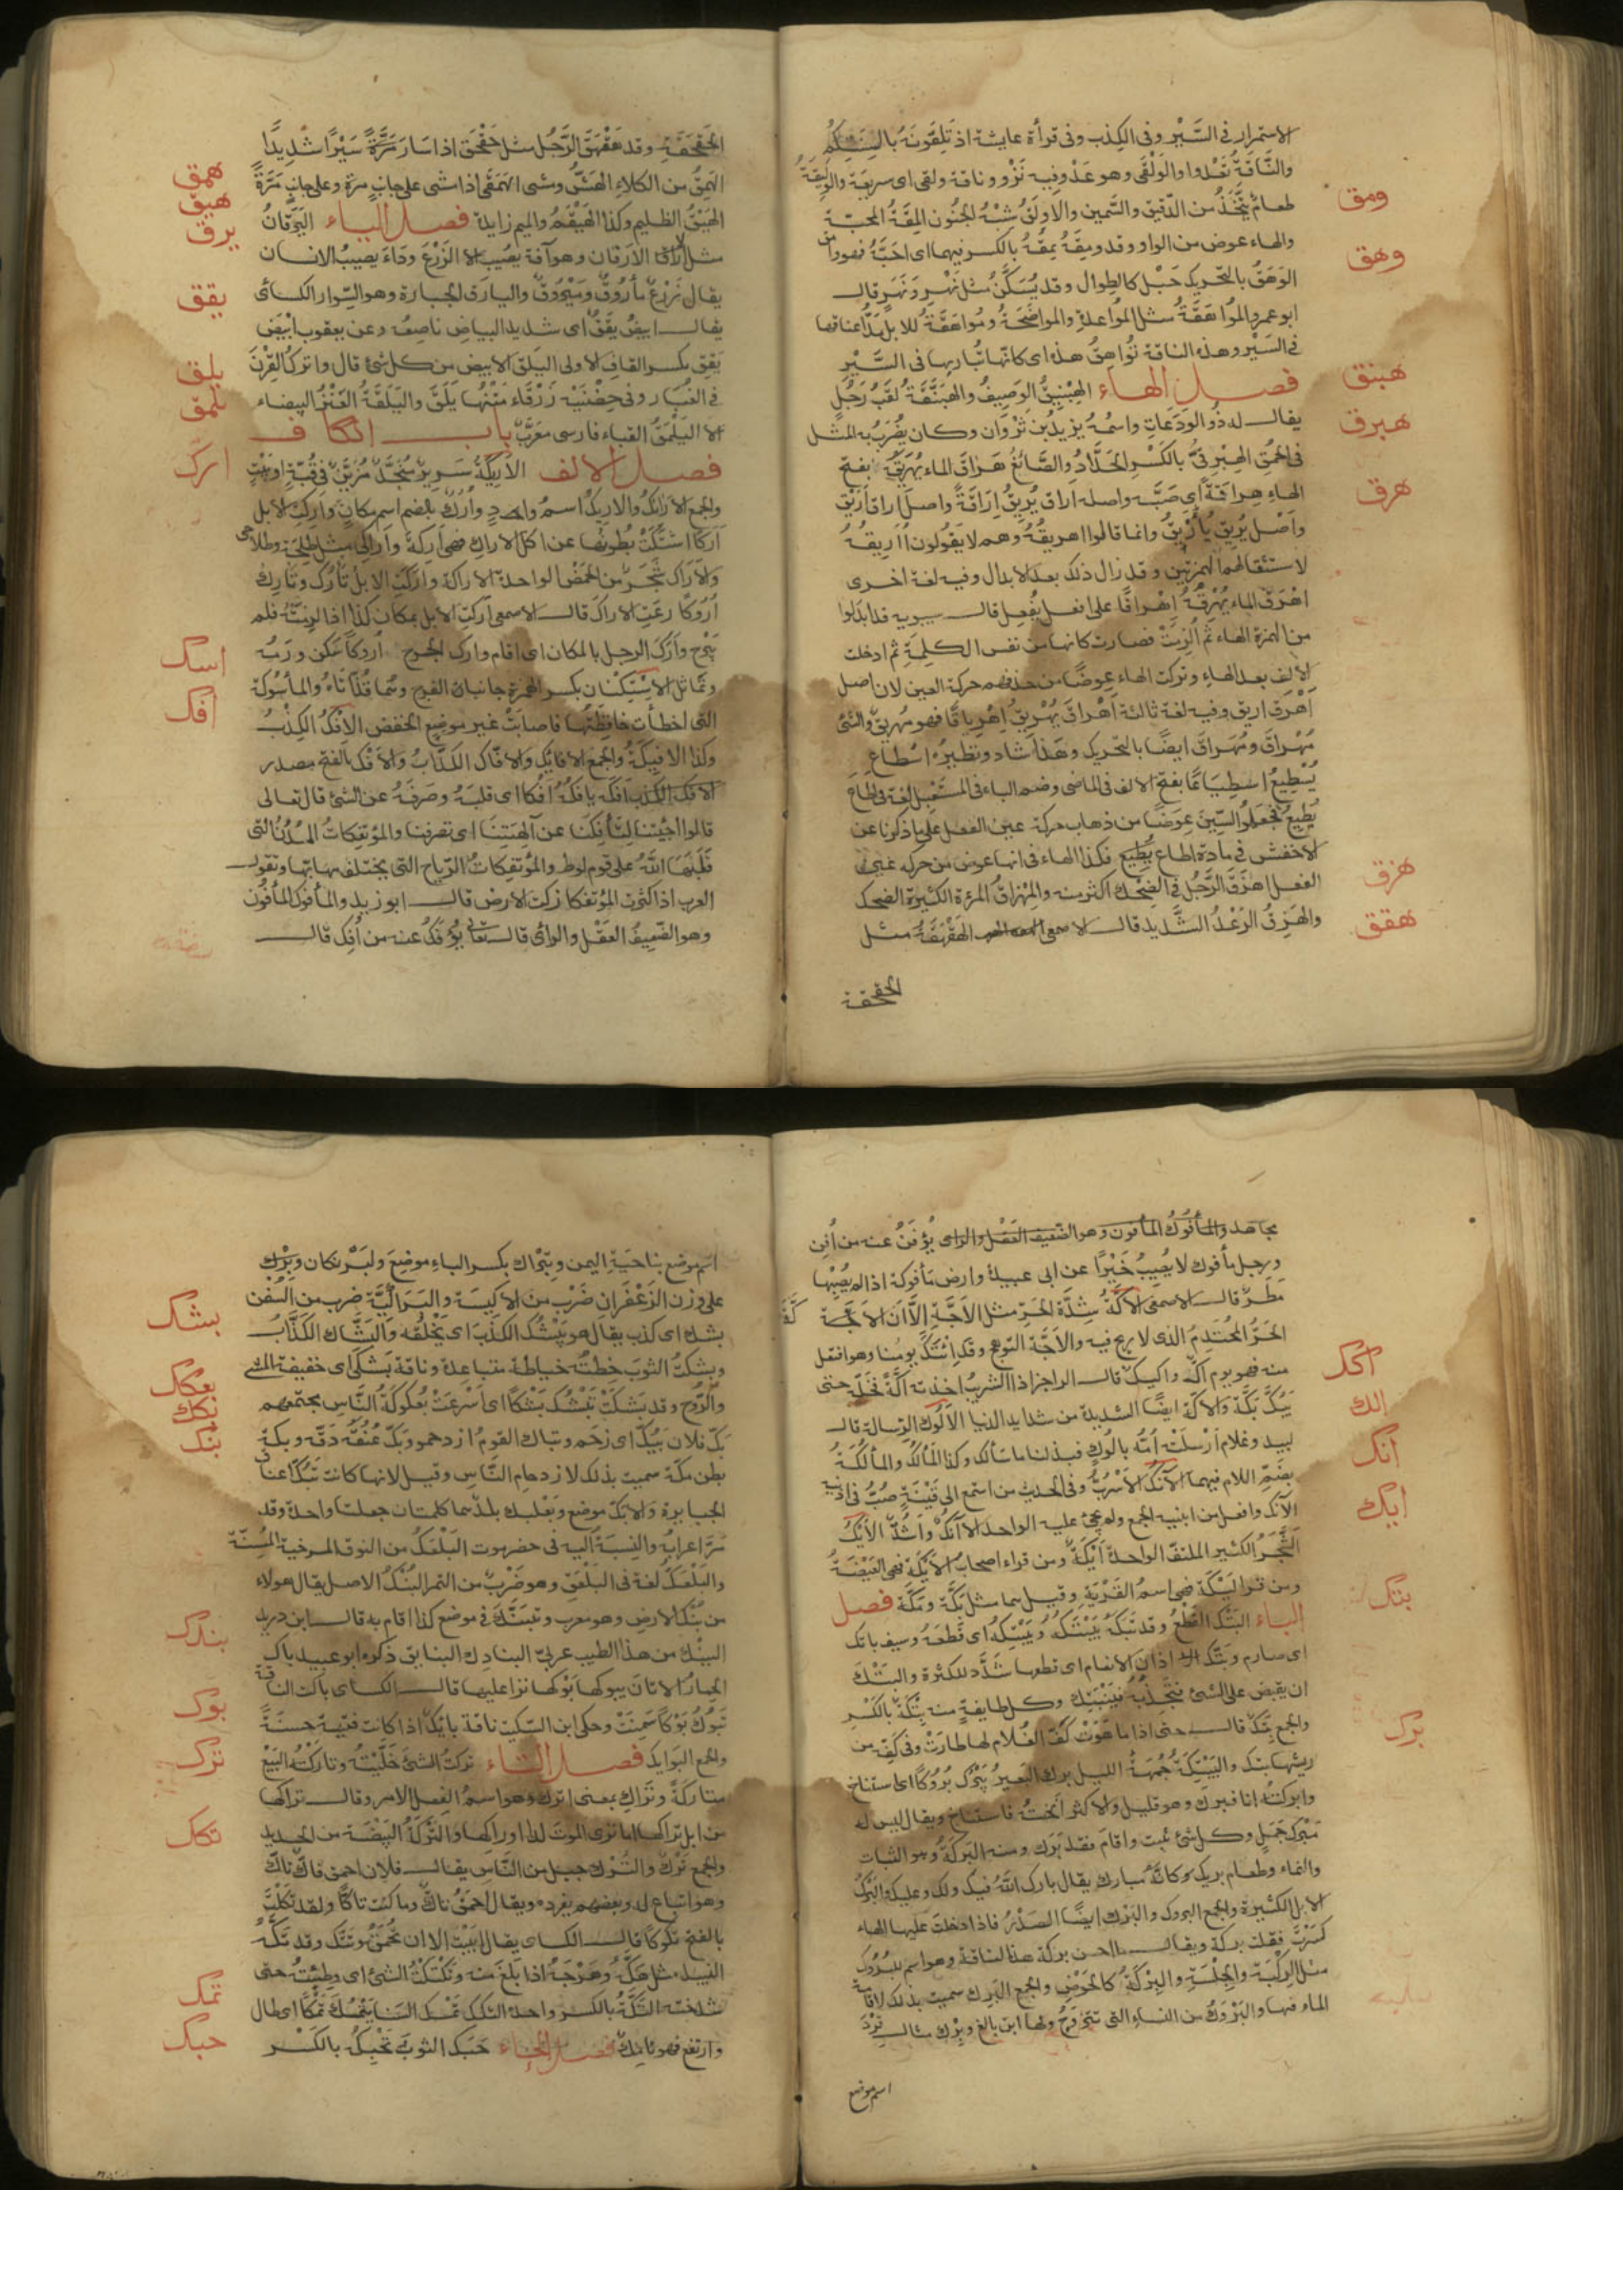 الاستمرار في السَّيْرِ وفى الكِذب وفى قرأة عايشة اذ تَلِقونَهُ بالسنتكم
والنَّاقَةُ تَعْدُوا والوَلَقَى وهو عَدْوٌ فيه نَزْو وناقة ولقى اى سريعة والوليقة
طعامٌ يُتَّخَذُ من الدّقيق والسَّمين والاولَقُ شبْهُ الجنُون المِقَةُ المحبّة
ومق
والهاء عوض من الواو وقد ومِقَهُ يمقُهُ بالكسر فيهما اى احَبَّهُ فهو وامق
الوَهَقُ بالتحريك حَبْل كالطِوال وقد يُسَكَّنُ مثل نَهْرٍ ونَهَرٍ قال
وهق
ابو عمرو المُواهَقَةُ مثل المُواعدةِ والمواضَخَةُ ومُواهَقَةُ للابل مَدُّ اعناقها
في السَيْر وهذه الناقة تُواهِقُ هذه اى كانّها تباريها فى السَّيْرِ
فصل الهاء الهِبْنِيقُ الوَصِيفُ والهَبَنَّقَةُ لقَبُ رَجُلٍ
هبنق
يقال له ذُو الوَدَعَاتِ واسمُهُ يزيد بْن ثَرْوان وكان يُضْرَبُ به المثل
فى الحمْقِ الهِبْرِقىُّ بالكَسْرِ الحدّادُ والصَّائغ هَراقَ الماء يُهَرِيقُهُ بفتح
هبرق
الهاءِ هِراقَةً اى صَبَّهُ واصله اراق يُرِيقُ اِرَاقَةً واصل اراق اَرْيَقَ
هرق
واَصْل يُرِيق يُأَرْيِقُ وانما قالوا اهريقُهُ وهم لا يَقُولون أُأَرِيقُهُ
لاستثقالهم الهمزتين وقد زال ذلك بعد الابدال وفيه لغة اخرى
اهْرَقَ الماء يُهْرِقُهُ اِهْراقًا على افعل يُفْعِل قال سيبويه قد ابدلوا
من الهمزة الهاء ثم اُلزِمَتْ فصارت كانها من نفس الكلِمَةِ ثم ادخلت
الالف بعد الهاءِ وتركت الهاء عِوضًا من حذفهم حركة العين لان اصل
اَهْرَق اريق وفيه لغة ثالثة اَهْراقَ يُهْرِيقُ اِهْرِياقًا فهو مُهْرِيقٌ والشئ
مُهْراقٌ ومُهَراقٌ ايضًا بالتحريك وهَذا شاذ ونظيرُهُ اسْطاع
يُسْطِيعُ اسطِيَاعًا بفتح الالف فى الماضى وضم الياء فى المستقبل لغة فى اطاع
يُطِيعُ فجعلوا السِّينَ عِوَضًا من ذهاب حركة عين الفعل على ما ذكرنا عن
الاخفش فى مادة اطاع يُطِيع فكذا الهاء فى انها عوض من حركة عين
الفعل اهزَقَ الرَّجُل فى الضِحْك اكثر منه والمِهْزاقُ المرءة الكثيرة الضحك
هزق
والهَزِقُ الرَعْدُ الشَّديد قال الاصمعى الهَقْهَقَةُ مثل
هقق
الحقحقة
الحَقحَقَةِ وقد هَقْهَقَ الرَّجُل مثل حَقْحَقَ اذا سَارَ مَرَّةً سَيْرًا شَدِيدًا
الهَمِقُ من الكلاءِ الهَشُّ ومشى الهَمَقَى اذا مَشى على جانبٍ مرّة وعلى جانبٍ مَرَّةً
همق
الهَيْقُ الظليم وكذا الهَيْقَمُ والميم زايدة فصل الياء اليَرَقانُ
هيق
يرق
مثل الارقان وهو آفة يصيبُ الزَرْعَ ودَاءٌ يصيبُ الانسان
يقال زَرْعٌ مأرُوقٌ ومَيْرُوقٌ واليارَق الجبارة وهو السّوار الكسائى
يقال ابيض يَقَقٌ اى شديد البياض ناصِعٌ وعن يعقوب ابْيَض
يقق
يَقِق بكسر القاف الاولى اليَلق الابيض من كل شئ قال واترك القِرْنَ
يلق
فى الغُبَار وفى حِضْنَيْه زَرْقَاء مَتْنُها يَلَق واليَلَقَةُ العَنْزُ البيضاء
يلمق
اليَلْمَقُ القباء فارسى معَرَّبٌ باب الكاف
فصل الالف الاريكَةُ سَرِيرٌ مُنجَّدٌ مُزيَّنٌ فى قُبّةٍ او بَيْتٍ
ارك
والجمع الارَائكُ والاريك اسم وادٍ واُرُك بالضم اسم مكان واَرِكتِ الابل
اَرَكًا اشتكَتْ بُطُونُها عن اكل الاراك فهى اَرِكَة واَراكى مثل طَلِحَة وطلاحى
والأراك شَجَرٌ من الحَمْض الواحدة الاراكة واركَتِ الابل تأرُك وتأرِك
اُرُوكًا رَعَتِ الاراكَ قال الاصمعى اَركَتِ الابل بمكان كذا اذا لزِمَتْهُ فلم
تبْرح واَرَكَ الرجل بالمكان اى اقام وارك الجُرح اُروكًا سكن ورَمُهُ
وتماثل الاِسْكتَان بكسر الهمزة جانبا الفرج وهُما قُذَّتاهُ والمأسُوكَة
اسك
التى اخطأت خافِضَتُها فاصابَتْ غير موضِع الخفض الاِفكُ الكِذْبُ
افك
وكذا الافِيكَةُ والجمع الافايك والافّاك الكذّابُ والاَفْك بالفتح مصدر
اَفَكَه يافكُهُ اَفْكًا اى قلَبَهُ وصَرفَهُ عن الشئ قال تعالى
قالوا اجِئْتَنا لِتَأفِكَنَا عن آلِهَتِنَا اى تصرفنا والمؤتفِكاتُ المُدُنُ التى
قَلَبَهَا اللهُ على قوم لوط والمُؤتفِكاتُ الرّياح التى يختلف مهابّها وتقول
العرب اذا كثرت المؤتفكات زكت الارض قال ابو زيد والمأفوك المأفُون
وهو الضّعِيفُ العَقْل والراى قال تعالى يُؤفَكُ عنه من اُفِك قال
مجاهد يُؤْفَنُ عنه من اُفِن
ورجل مأفوك لا يُصِيبُ خَيْرًا عن ابى عبيدة وارض مأفوكة اذا لم يُصِبْها
مَطَرٌ قال الاصمعى الاَكَّةُ شِدَّة الحَرِّ مثل الاَجَّةِ الّا ان الاكّة
الحَرُّ المُحْتَدِمُ الذى لا ريح فيه والاَجَّة التوهج وقد ائتكَّ يومُنا وهو افتعل
منه فهو يوم اَكٌّ واكيك قال الراجز اذا الشريبُ اخذته اَكَّهْ فخَلِّهِ حتى
اكك
يبُكَّ بَكَّهْ والاَكّة ايضًا الشديدة من شدايد الدنيا الاَلُوك الرِسالة قال
الك
لبيد وغلامٍ اَرْسلَتْهُ اُمُّه بالُوكٍ فبذلنا ما سَألك وكذا المأْلُكُ والمألُكَةُ
بضم اللام فيهما الآنُكُ الاُسْرُبُّ وفى الحديث من استمع الى قَيْنَةٍ صُبَّ فى اذنيه
انك
الآنك وافعل من ابنية الجمع ولم يجئ عليه الواحد الا آنُك واَشُدّ الاَيْكُ
ايك
الشَّجَر الكثير الملتفّ الواحدة اَيْكَةٌ ومن قراء اصحابُ الاَيْكَة فهى الغَيْضَةُ
ومن قرأ لَيْكَة فهى اسمُ القَرْيَةِ وقيل هما مثل بَكَّة ومَكَّة فصل
الباء البَتْكُ القَطْعُ وقد بَتَكَهُ يَبْتُكُهُ ويَبْتِكُه اى قَطَعَهُ وسيف باتك
بتك
اى صارم وبَتّك اذان الانعام اى قطعها شدّد للكثرة والبَتْك
ان يقبض على الشئ فَتَجْذِبَهُ فينْبَتِك وكل طايفةٍ منه بِتْكَةٌ بالكَسْرِ
والجمع بِتَكٌ قال حتى اذا ما هَوَتْ كَفُّ الغُلام لها طارَتْ وفى كفِّه من
برك
ريشها بتك والبِتْكَةُ جُهْمَةُ الليل برك البَعير يَبْرُك بُرُوكًا اى استناخ
وابركتُهُ انا فبرك وهو قليل والاكثر اَنَختُهُ فاستناخ ويقال ليس له
مَبْرَكُ جَمَلٍ وكل شئ ثبت واقامَ فقد بَرَك ومنه البَرَكَةُ وهو الثبات
والنماء وطعام بريك وكانّه مبارك يقال بارك الله فيك ولك وعليك والبَرْكُ
الابل الكثيرة والجمع البروك والبَرْك ايضًا الصَدْرُ فاذا ادخلتَ عليها الهاء
كَسَرْتَ فقلت بركة ويقال ما احسن بركة هذه الناقة وهو اسم للبُرُوك
مثل الرِكْبَةِ والجِلْسَةِ والبِرْكَةُ كالحَوْض والجمع البِرَك سميت بذلك لاقامة
الماء فيها والبَرُوكُ من النساءِ التى تتزوّجُ ولها ابن بالغ وبِرْك مثال قِرْدٍ
اسم موضع
اسم موضع بناحية اليمن وبِراك بكسر الباء موضع والبَرْنكان
على وزن الزَعْفَران ضَرْبٌ من الاكيسة والبُرَاكيّة ضرب من السُفن
بشك اى كذب يقال هو يَبْشُك الكذب اى يَخْلُقُه والبَشّاك الكَذّابُ
بشك
وبشكتُ الثوبَ خِطتُه خياطة متباعدة وناقة بَشَكَى اى خفيفة المشى
والرُوح وقد بَشَكَتْ تَبْشُك بَشْكًا اى اَسْرَعَتْ بُعْكُوكَةُ النَّاسِ مجتمعهم
بعكك
بَكّ فلان يبُكّ اى زحَم وتباك القومُ ازدحموا وبَكّ عُنُقَهُ دَقّه وبكّة
بكك
بطن مكّة سميت بذلك لازدحام النَّاسِ وقيل لانها كانت تَبُكّ اعناق
بنك
الجبابرة والابَكّ موضع وبَعْلبك بلد هما كلمتان جعلتا واحدة وقد
مَرّ اعرابُهُ والنِسبَةُ اليه فى حضرموت البَلْعَكُ من النوق المسترخية المُسِنَّة
والبَلْعَكُ لغة فى البَلْعَق وهو ضَرْبٌ من التمر البُنْك الاصل يقال هولاء
من بُنْك الارض وهو معرب وتَبَنَّكَ فى موضع كذا اقام به قال ابن دريد
البنْك من هذا الطيب عربى البنادِك البنايق ذكره ابو عبيد باك
بندك
الحِمارُ الاتانَ يبوكها بَوْكًا نزا عليها قال الكسائى باكت الناقة
تَبُوكُ بَوْكًا سَمِنَتْ وحكى ابن السكيت ناقة بايك اذا كانت فتية حسنةً
بوك
والجمع البوايك فصل التاء تركتُ الشئ خَلَّيْتُه وتاركتُه البَيْعَ
ترك
متاركَةً وتَراكِ بمعنى اترك وهو اسم الفعل الامر وقال تراكها
من ابل تراكها اما ترى الموت لدا اوراكها والتَّركَةُ البَيْضَة من الحديد
والجمع تَرْكٌ والتُّرْك جيل من النَّاس يقال فلان احمق فاكٌّ تاكٌّ
تكك
وهو اتباع له وبعضهم يفرده ويقال احمَقُ تاكٌّ وما كنت تاكًّا ولقد تكَكْتَ
بالفتح تُكُوكًا قال الكسائى يقال ابَيْتَ الا ان تحمُقَ وتتُكَّ وقد تَكَّهُ
النبيذ مثل هَكَّهُ وهَرَّجَهُ اذا بَلَغَ منه وتكتكتُ الشئ اى وطئتُه حتى
شدخته التِّكَّةُ بالكسر واحد التِكك تَمَكَ السَنام يَتْمُك تَمْكًا اى طال
تمك
وارتفع فهو تامك فصل الحاء حَبَك الثوبَ يَحْبِكُ بالكَسْرِ
حبك